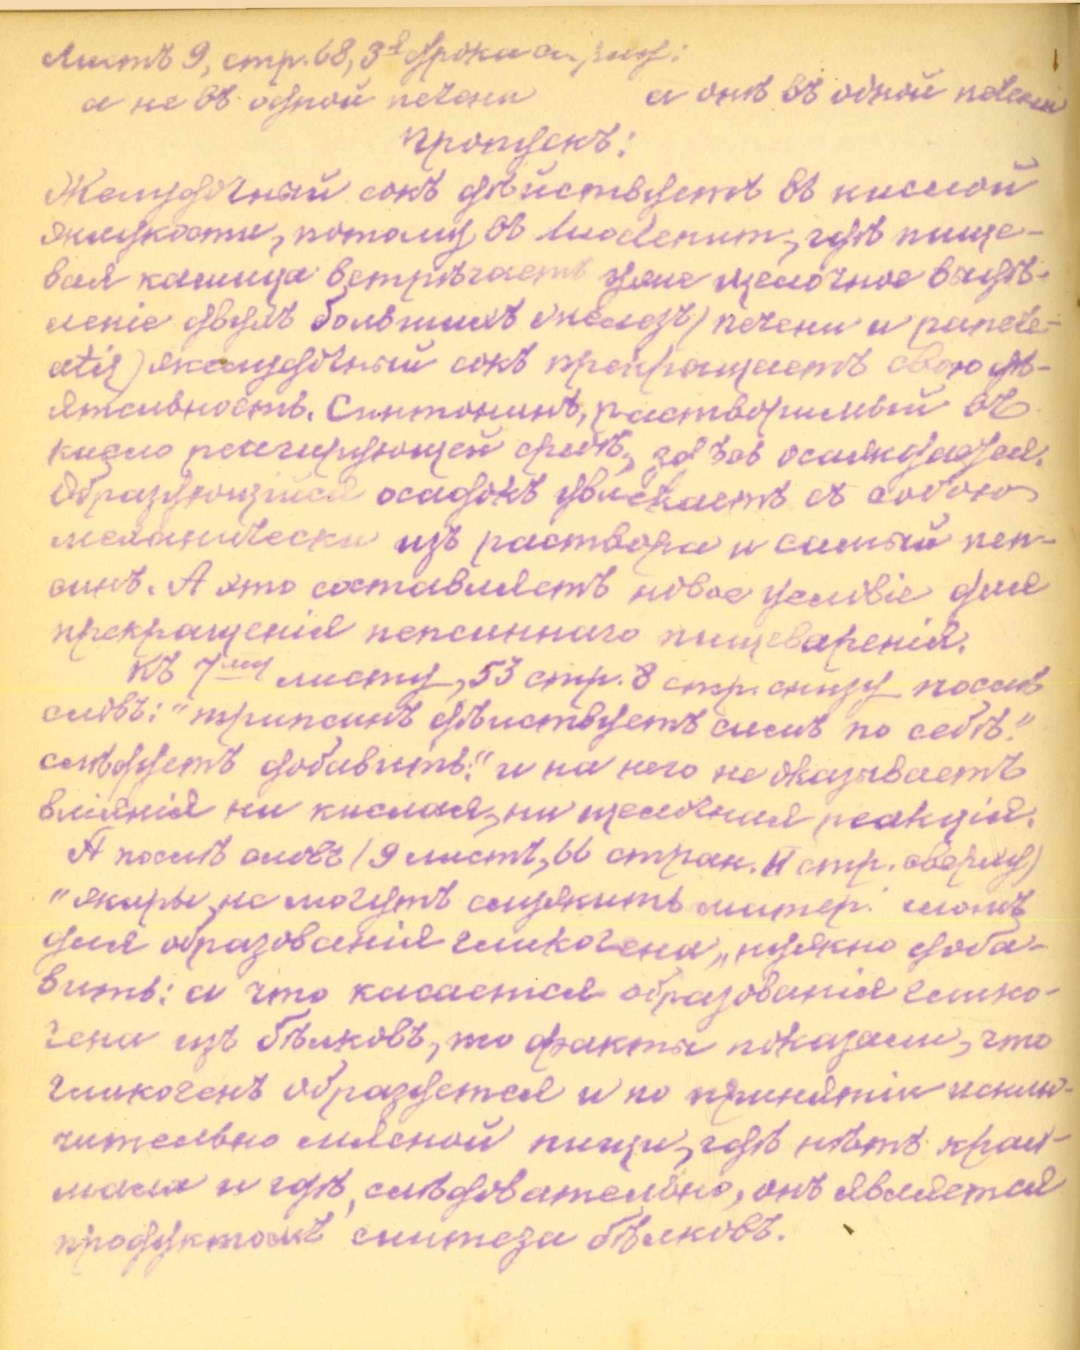 Листъ 9, стр. 68, 3я строка
а не въ одной печени а онъ въ одной печени
Пропускъ:
Желудочный сокъ дѣйствуетъ въ кислой
жидкости, потому въ duodenum, гдѣ пище-
вая кашица встрѣчаетъ уже щелочное выдѣ-
леніе двухъ большихъ железъ) печени и pancre-
atis) желудочный сокъ прекращаетъ свою дѣ-
ятельность. Синтонинъ, растворимый въ
кисло реагирующей средѣ, здѣсь осаждается.
Образующійся осадокъ увлекаетъ съ собою
механически изъ раствора и самый пеп-
синъ. А это составляетъ новое условіе для
прекращенія пепсиннаго пищеваренія.
Къ 7му листу, 53 стр. 8 стр. снизу послѣ
словъ: "трипсинъ дѣйствуетъ самъ по себѣ."
слѣдуетъ добавить: "и на него не оказываетъ
вліянія ни кислая, ни щелочная реакція.
А послѣ словъ (9 листъ, 66 стран. II стр. сверху)
"жиры не могутъ служить матеріаломъ
для образованія гликогена," нужно доба-
вить: а что касается образованія глико-
гена изъ бѣлковъ, то факты показали, что
гликогенъ образуется и по принятіи исклю-
чительно мясной пищи, гдѣ нѣтъ крах-
мала и гдѣ, слѣдовательно, онъ является
продуктомъ синтеза бѣлковъ.